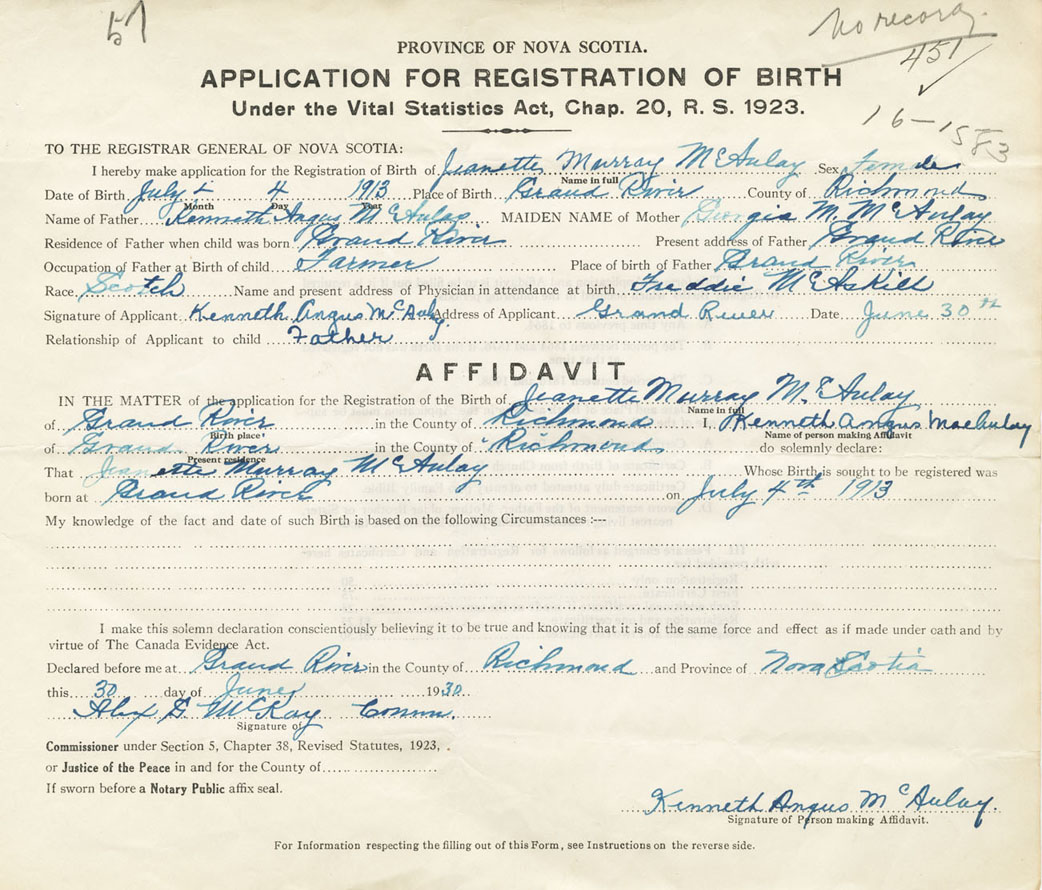 57
No record.
451
16-1583
PROVINCE OF NOVA SCOTIA.
APPLICATION FOR REGISTRATION OF BIRTH
Under the Vital Statistics Act, Chap. 20, R. S. 1923.
TO THE REGISTRAR GENERAL OF NOVA SCOTIA:
I hereby make application for the Registration of Birth of Jeanette Murray McAulay Sex female
Name in full
Date of Birth July 4 1913 Place of Birth Grand River County of Richmond
Month Day Year
Name of Father Kenneth Angus McAulay MAIDEN NAME of Mother Georgia M. McAulay
Residence of Father when child was born Grand River Present address of Father Grand River
Occupation of Father at Birth of child Farmer Place of birth of Father Grand River
Race Scotch Name and present address of Physician in attendance at birth Freddie McAskill
Signature of Applicant Kenneth Angus McAulay Address of Applicant Grand River Date June 30th
Relationship of Applicant to child Father
AFFIDAVIT
IN THE MATTER of the application for the Registration of the Birth of Jeanette Murray McAulay
Name in full
of Grand River in the County of Richmond I, Kenneth Angus MacAulay
Birth place Name of person making Affidavit
of Grand River in the County of Richmond do solemnly declare:
Present residence
That Jeanette Murray McAulay Whose Birth is sought to be registered was
born at Grand River on July 4th 1913
My knowledge of the fact and date of such Birth is based on the following Circumstances :---
I make this solemn declaration conscientiously believing it to be true and knowing that it is of the same force and effect as if made under oath and by
virtue of The Canada Evidence Act.
Declared before me at Grand River in the County of Richmond and Province of Nova Scotia
this 30 day of June 1930
Alex G. McKay Comm.
Signature of
Commissioner under Section 5, Chapter 38, Revised Statutes, 1923, .
or Justice of the Peace in and for the County of
If sworn before a Notary Public affix seal.
Kenneth Angus McAulay.
Signature of Person making Affidavit.
For Information respecting the filling out of this Form, see Instructions on the reverse side.